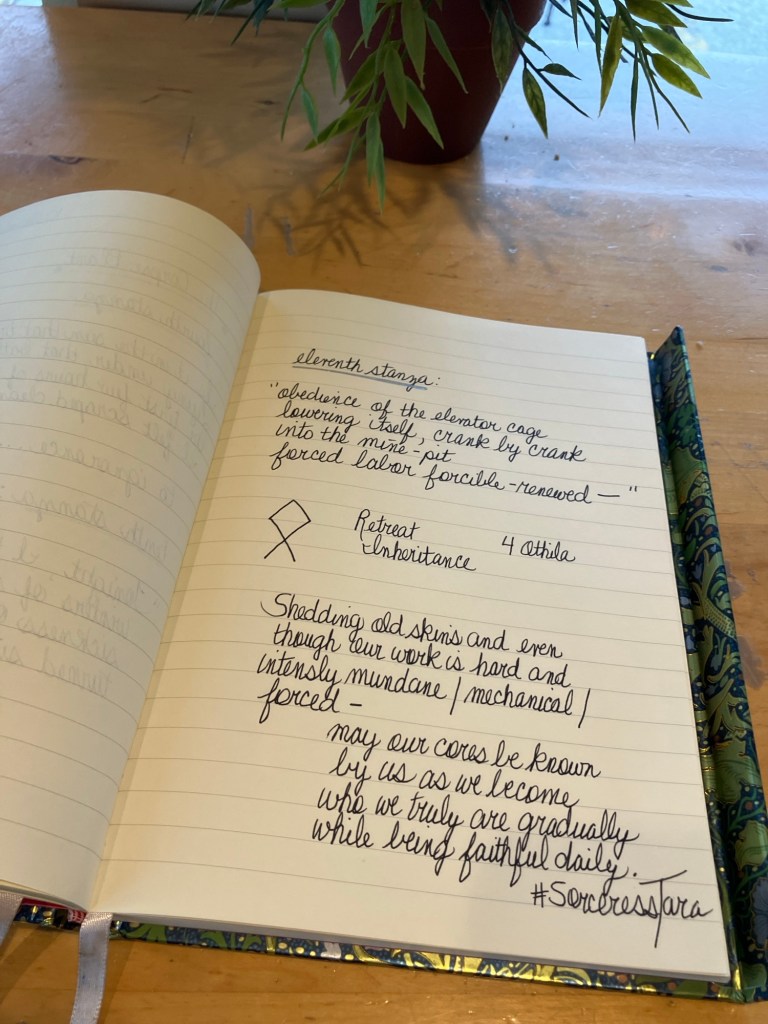 eleventh stanza:
"obedience of the elevator cage
lowering itself, crank by crank
into the mine-pit
forced labor forcible-renewed — "
Retreat
Inheritance
4 Othila
Shedding old skins and even
though our work is hard and
intensly mundane / mechanical /
forced -
may our cores be known
by us as we become
who we truly are gradually
while being faithful daily.
#SorceressTara